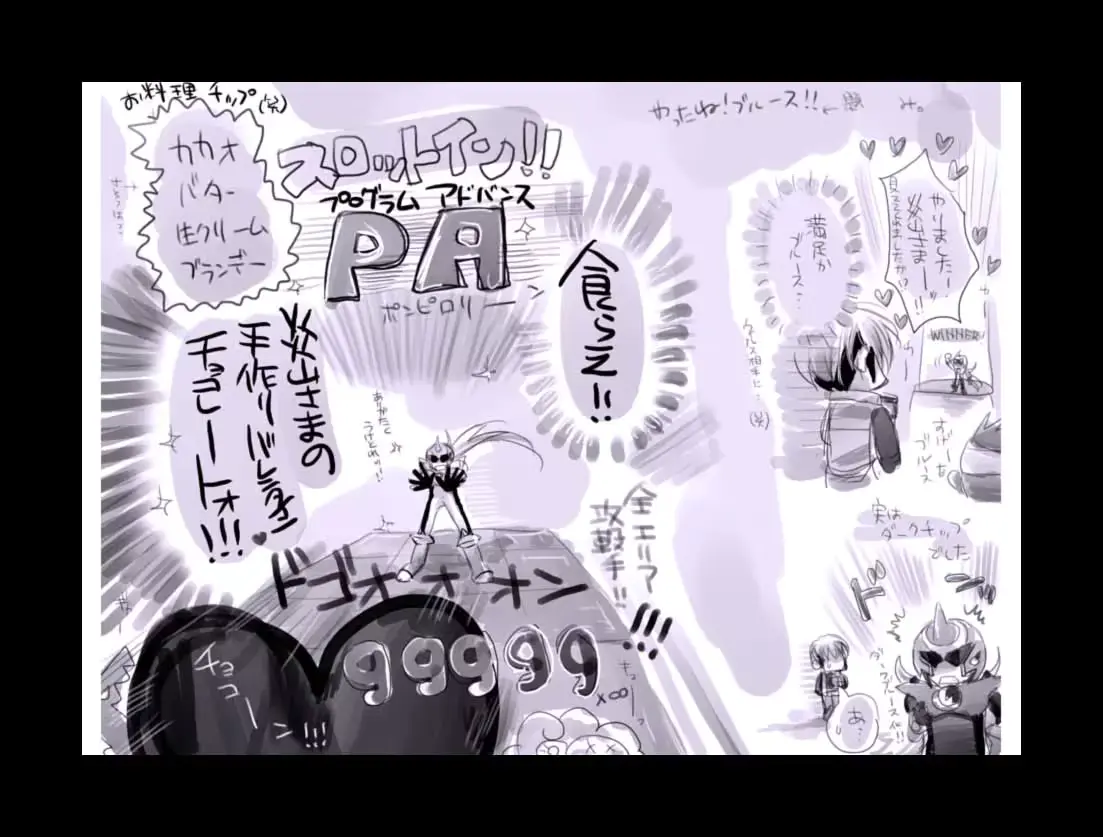 お料理チップ(笑)
カカオ
バター
生クリーム
ブランデー
スロットイン!!
プログラム アドバンス
PA
ポンピロリーン
食らえ!!
炎山さまの
手作りバレンタイン
チョコレートォ!!!
ありがたく
うけとめ
全エリア
攻撃チ!!
!!!
ドゴォォォン
99999
チョコーン!!!
×∞
やったね!ブルース!!
み。
やりましたー
炎山さまーッ!!
見ててくれましたかー!
満足か
ブルース…
ウイルス相手に…
(笑)
WINNER
すげーな
ブルース
実は
ダークチップ
でした
ドーン
ダークブルース化!!
あ…